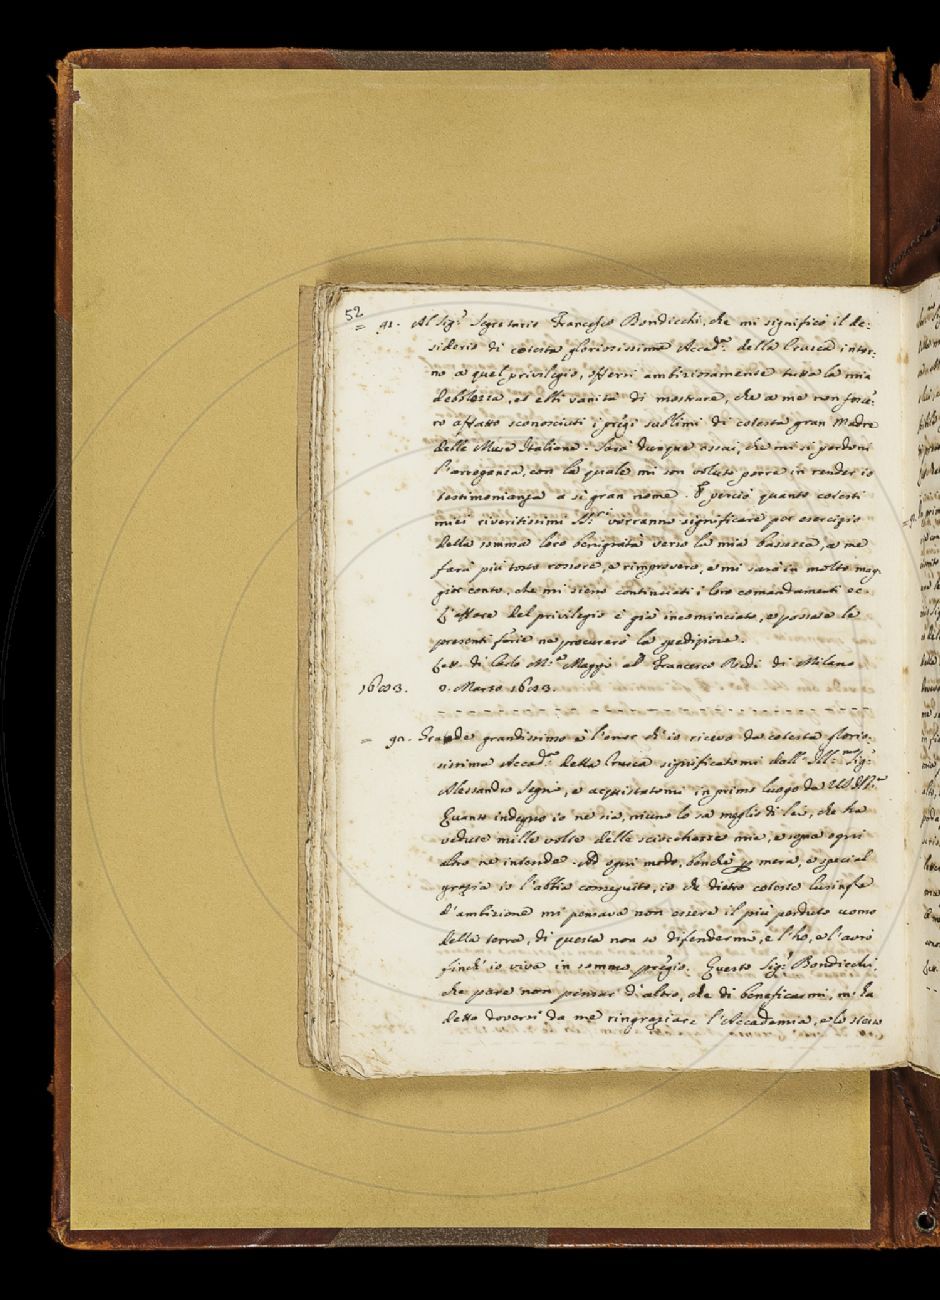 52
= 91. Al Sig.r Segretario Francesco Bondicchi, che mi significò il de:
siderio di cotesta gloriosissima Accad.a della Crusca intor:
no a quel privilegio, offersi ambiziosamente tutta la mia
debbolezza, et ebbi vanità di mostrare, che a me non fosse:
ro affatto sconosciuti i pregi sublimi di cotesta gran Madre
delle Muse Italiane. Sarà dunque assai, che mi si perdoni
l'arroganza, con la quale mi son voluto porre in render io
testimonianza a sì gran nome. E perciò quanto cotesti
miei riveritissimi SS.ri vorranno significare per esercizio
della somma loro benignità verso la mia bassezza, a me
farà più tosto rossore, e rimprovero, e mi sarà in molto mag:
gior conto, che mi sieno continuati i loro comandamenti ec.
L'affare del privilegio è già incominciato, e passate le
presenti ferie ne procurerò la spedizione.
Lett. di Carlo M.a Maggi al Francesco Redi di Milano
1683. 3. Marzo 1683.
= 92. Grande grandissimo è l'onor ch'io ricevo da cotesta glorio:
sissima Accad.a della Crusca significatomi dall' Ill.mo Sig.r
Alessandro Segni, e acquistatomi in primo luogo da
Quanto indegno io ne sia, niuno lo sa meglio di lei, che ha
vedute mille volte delle sciocchezze mie, e sopra ogni
altro ne intende. Ad ogni modo, benchè per mera, e special
grazia io l'abbia conseguito, io che dietro coteste lusinghe
d'ambizione mi pensava non essere il più perduto uomo
della terra, di questa non so difendermi, e l'ho, e l'avrò
finch'io viva in sommo pregio. Questo Sig.r Bondicchi,
che pare non pensar d'altro, che di beneficarmi, m'ha
detto doversi da me ringraziare l'Accademia, e lo stesso